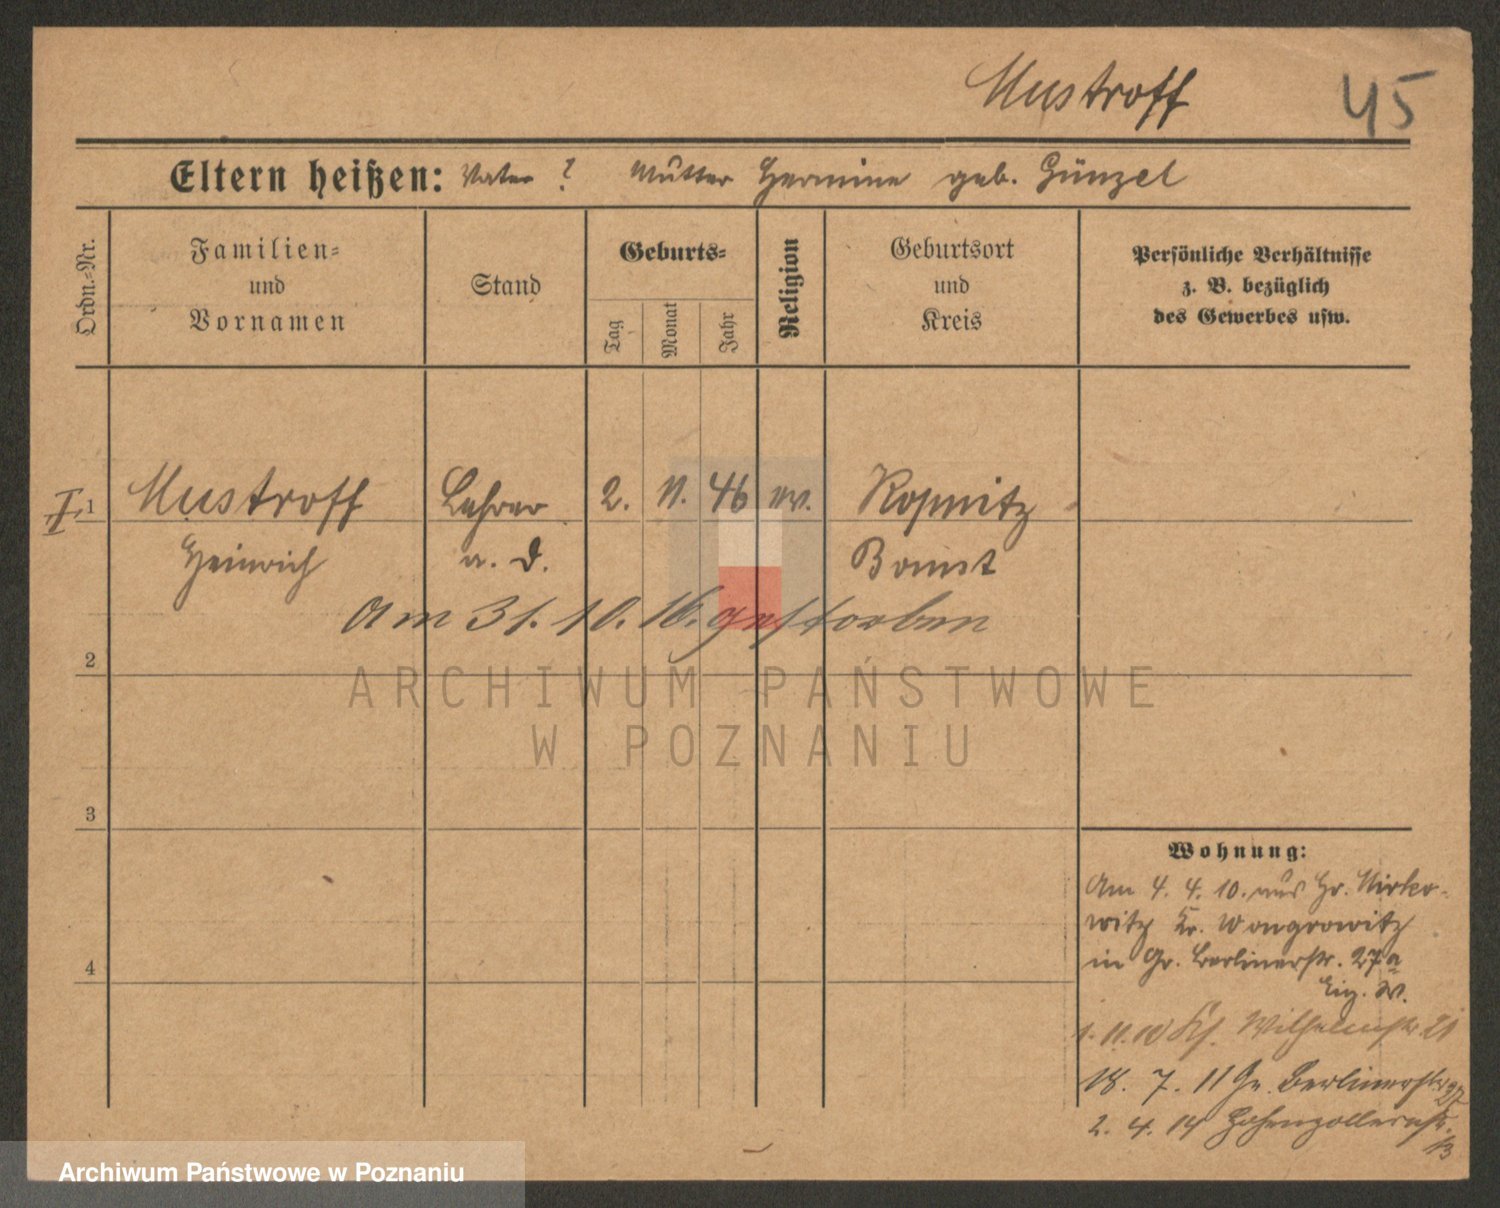 Mustroff 45
Eltern heißen: Vater ? Mutter Hermine geb. Günzel
Ordn.-Nr.
Familien-
und
Vornamen
Stand
Geburts-
Tag
Monat
Jahr
Religion
Geburtsort
und
Kreis
Persönliche Verhältnisse
z. B. bezüglich
des Gewerbes usw.
I 1 Mustroff Lehrer 2. 11. 46 ev. Kopnitz
Heinrich a. D. Bomst
Am 31. 10. 16. gestorben
2
ARCHIWUM PAŃSTWOWE
W POZNANIU
3
4
Wohnung:
Am 4. 4. 10. aus Gr. Mirko-
witz Kr. Wongrowitz
in Gr. Berlinerstr. 27a
Eig. W.
1. 11. 10 Wilhelmstr. 21
18. 7. 11 Gr. Berlinerstr 27
2. 4. 14 Hohenzollernstr. 13
Archiwum Państwowe w Poznaniu